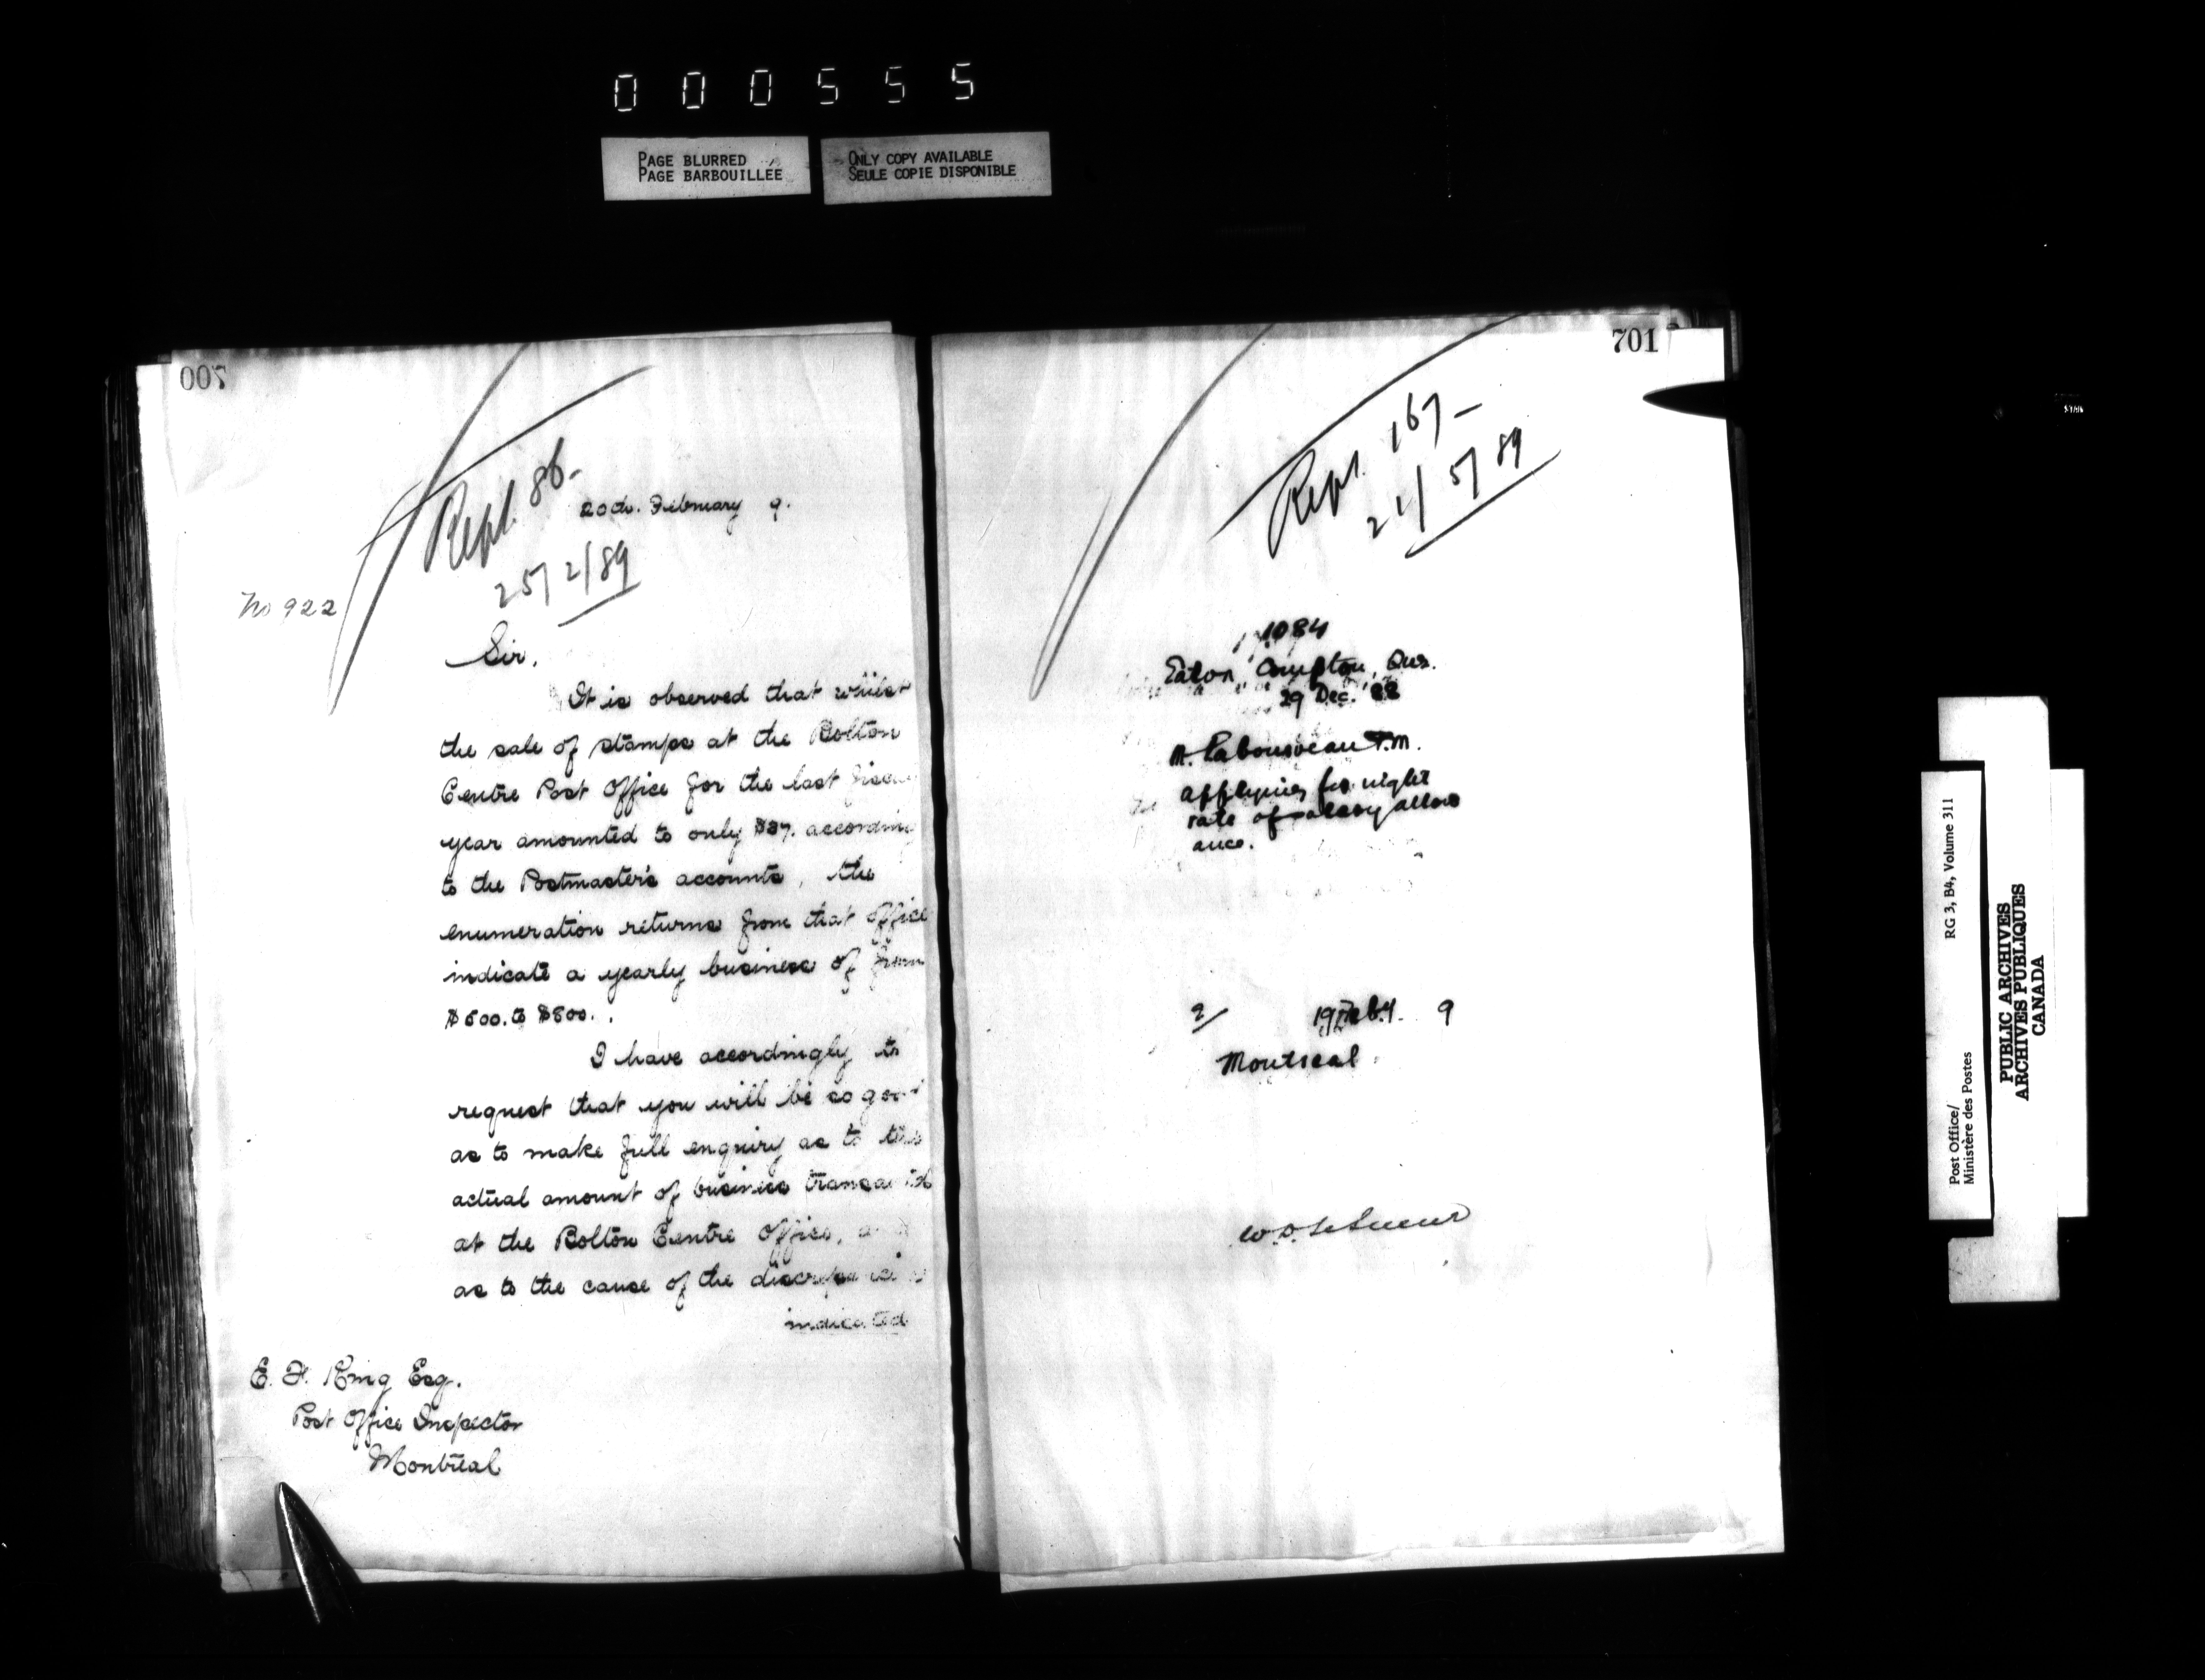 000555
PAGE BLURRED
PAGE BARBOUILLEE
ONLY COPY AVAILABLE
SEULE COPIE DISPONIBLE
700
Repl. 86-
25/2/89
20th. February 9.
No 922
Sir,
It is observed that whilst
the sale of stamps at the Bolton
Centre Post Office for the last
year amounted to only $37. according
to the Postmaster's accounts, the
enumeration returns from that office
indicate a yearly business of from
$600. to $800.
I have accordingly to
request that you will be so good
as to make full enquiry as to the
actual amount of business transacted
at the Bolton Centre Office, and
as to the cause of the discrepancies
indicated
E. F. King Esq.
Post Office Inspector
Montreal
701
Repl. 167-
21/5/89
1084
Eaton, Compton, Que.
29 Dec. '88
M. Labounveau P.M.
applying for night
rate of salary allow
ance.
2/ 19 Feb.y. 9
Montreal
W.D. LeSueur
Post Office/
Ministère des Postes
RG 3, B4, Volume 311
PUBLIC ARCHIVES
ARCHIVES PUBLIQUES
CANADA